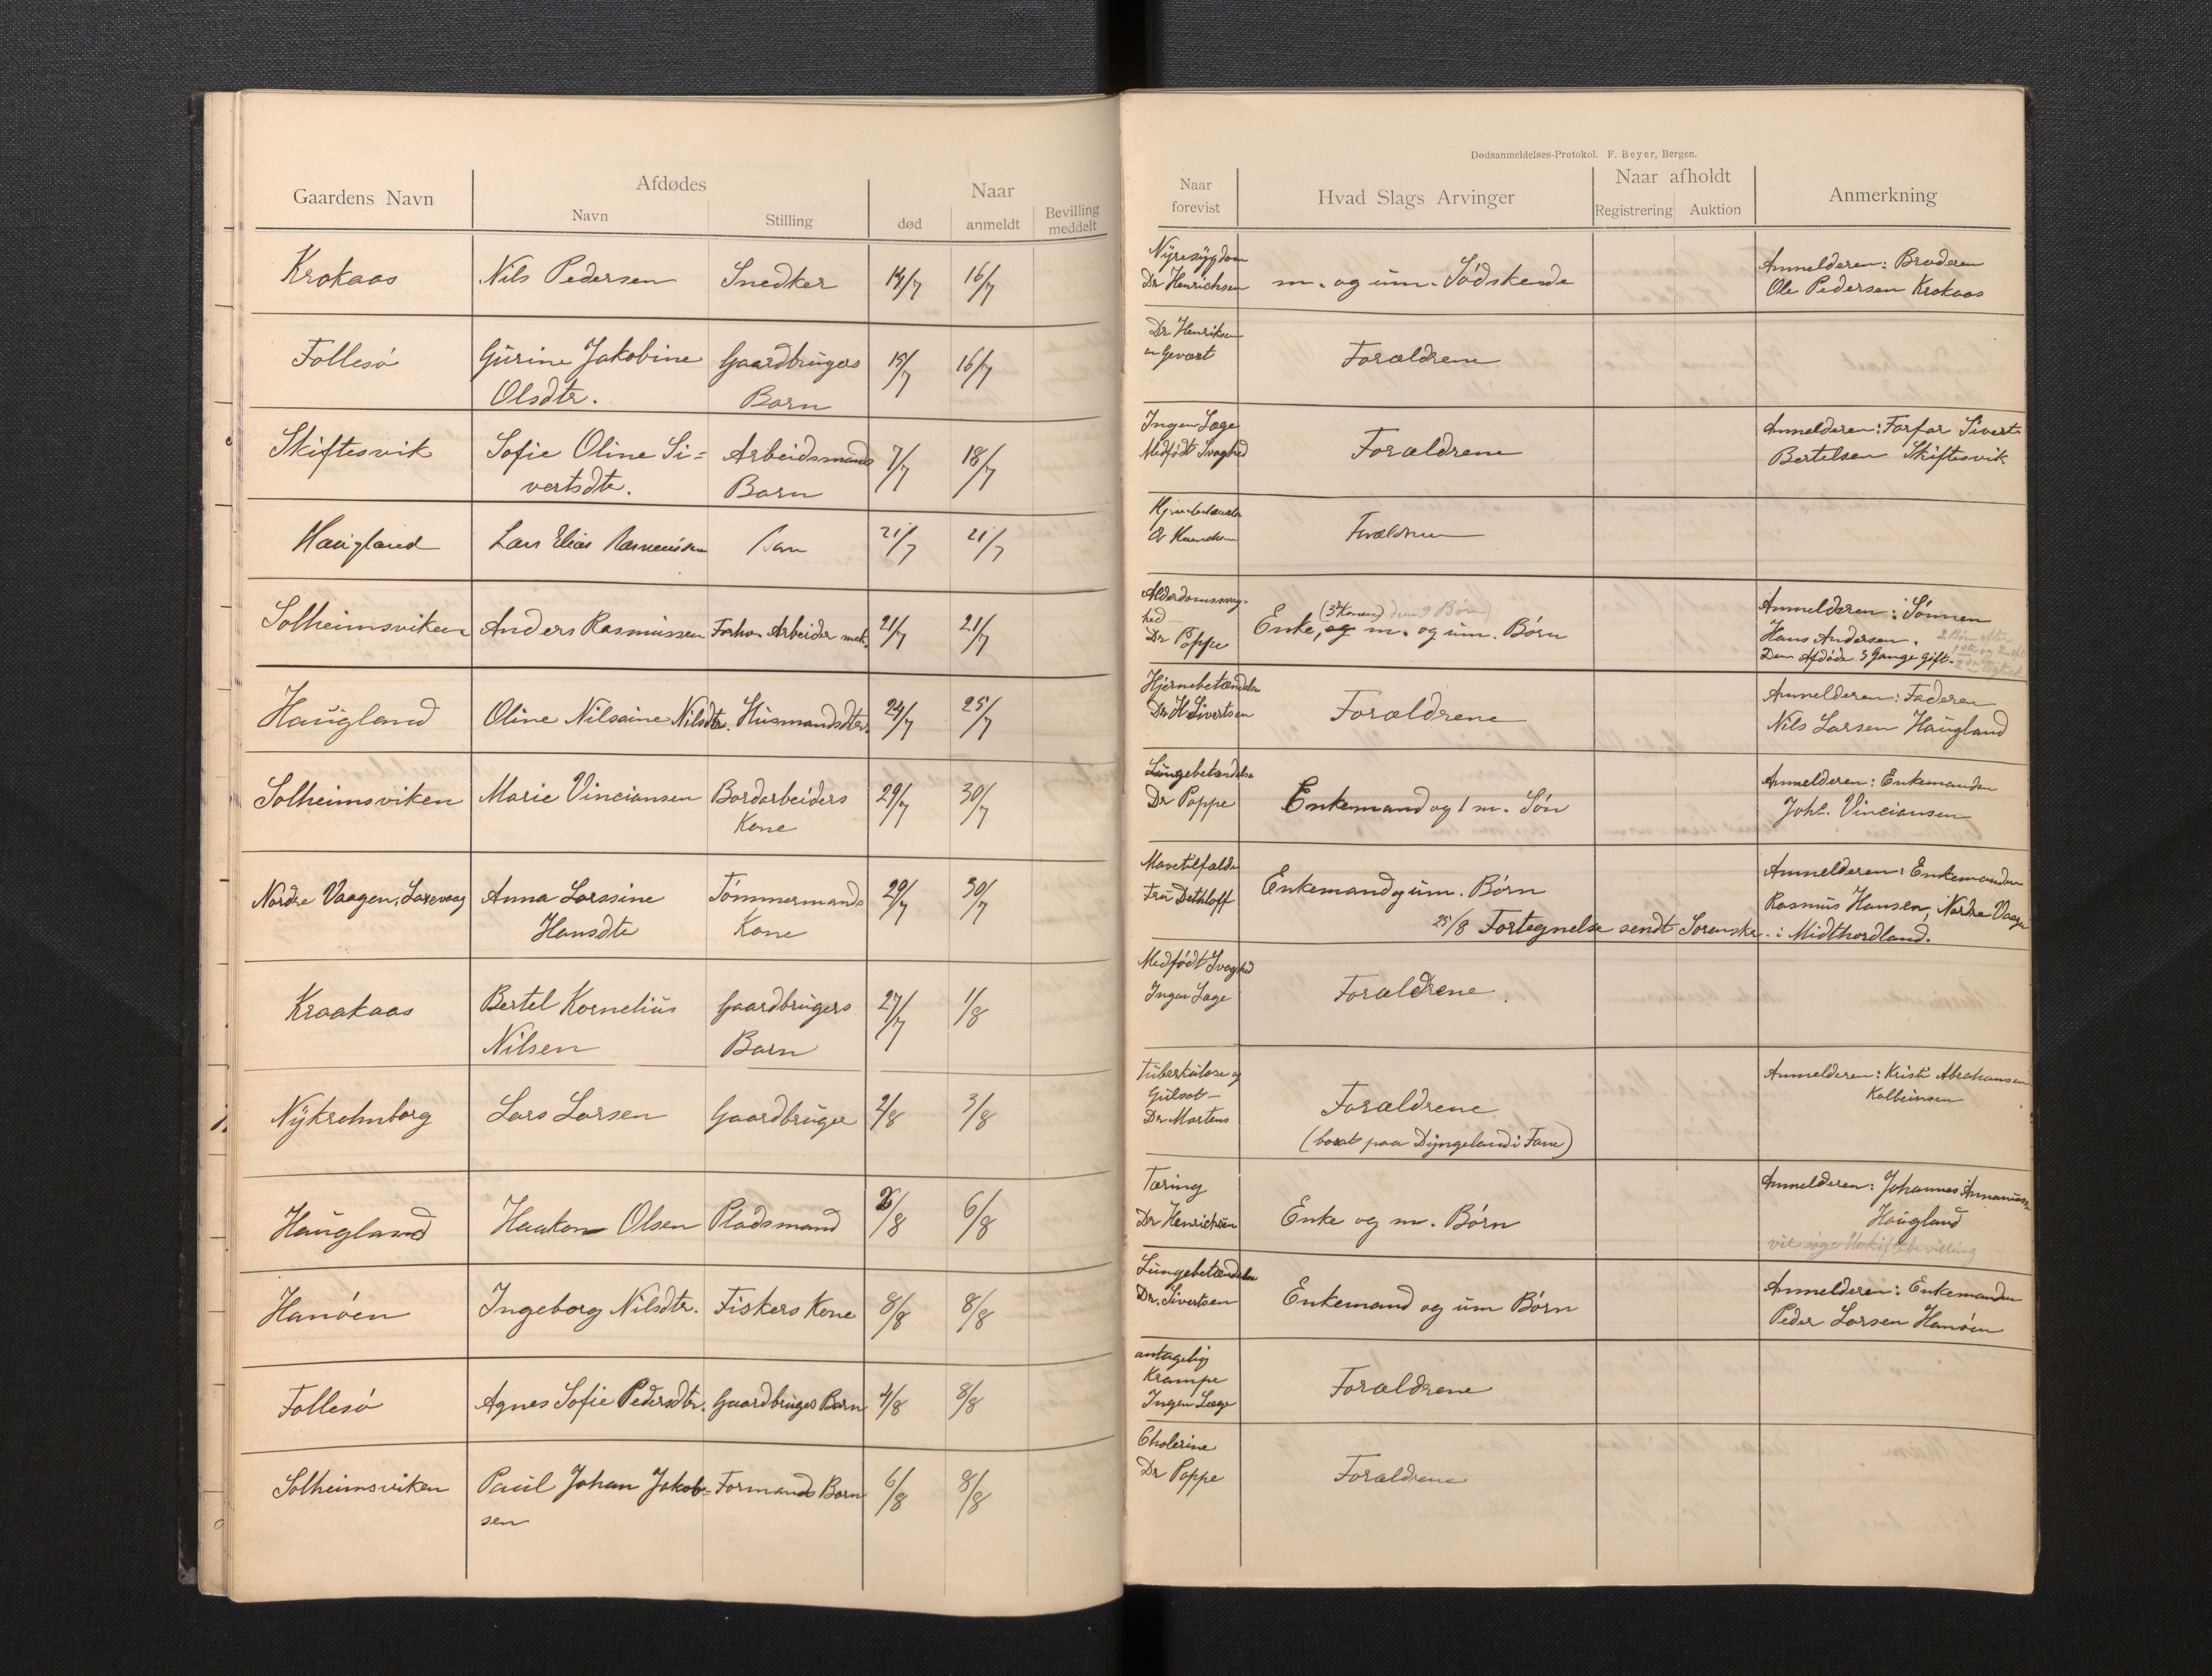 Dødsanmeldelses-Protokol. F. Beyer, Bergen.
Gaardens Navn
Afdødes
Navn
Stilling
Naar
død
anmeldt
Bevilling
meddelt
Naar
forevist
Hvad Slags Arvinger
Naar afholdt
Registrering
Auktion
Anmerkning
Krokaas Nils Pedersen Snedker 14/7 16/7
Nyresygdom
Dr Henrichsen m. og um. Södskende
Anmelderen: Broderen
Ole Pedersen Krokaas
Follesö Gurine Jakobine Gaardbrugers 15/7 16/7
Olsdtr. Barn
Dr Henriksen
Forældrene
Skiftesvik Sofie Oline Si= Arbeidsmands 7/7 18/7
vertsdtr. Barn
Ingen Læge
Medfödt Svaghed Forældrene
Anmelderen: Farfar Sivert
Bertelsen Skiftesvik
Haugland Lars Elias Rasmussen 21/7 21/7
Forældrene
Solheimsviken Anders Rasmussen Forhv. Arbeider mek. 21/7 21/7
Alderdomssvag-
hed
Dr Poppe
(3die Konen) den 9 Börn)
Enke, og m. og um. Börn
Anmelderen: Sönnen
Hans Andersen. 2 Börn efter
Den Afdöde 3 Gange gift.
Haugland Oline Nilsine Nilsdtr. Husmandsdtr. 24/7 25/7
Hjernebetændelse
Dr H Sivertsen Forældrene
Anmelderen: Faderen
Nils Larsen Haugland
Solheimsviken Marie Vinciansen Bordarbeiders 29/7 30/7
Kone
Lungebetændelse
Dr Poppe Enkemand og 1 m. Sön
Anmelderen: Enkemanden
Johs. Vinciansen
Nordre Vaagen, Laxevaag Anna Larssine Tömmermands 29/7 30/7
Hansdtr Kone
Mavetilfælde
Fru Dethloff Enkemand og um. Börn
Anmelderen: Enkemanden
Rasmus Hansen, Nordre Vaagen
25/8 Fortegnelse sendt Sorenskr. i Midthordland.
Kraakaas Bertel Kornelius Gaardbrugers 27/7 1/8
Nilsen Barn
Medfödt Svaghed
Ingen Læge Forældrene
Nykrohnborg Lars Larsen Gaardbruger 2/8 3/8
Tuberkulose og
Gulsot-
Dr Martens Forældrene
(bosat paa Dyngeland i Fane)
Anmelderen: Kristi Abrahamsen
Kolbeinsen
Haugland Haakon Olsen Pladsmand 6/8
Tæring
Dr Henrichsen Enke og m. Börn
Anmelderen: Johannes
Haugland
vil söge Uskiftebevilling
Hanöen Ingeborg Nilsdtr. Fiskers Kone 8/8 8/8
Lungebetændelse
Dr. Sivertsen Enkemand og um Börn
Anmelderen: Enkemanden
Peder Larsen Hanöen
Follesö Agnes Sofie Pedersdtr. Gaardbruges Barn 4/8 8/8
antagelig
Krampe
Ingen Læge Forældrene
Solheimsviken Paul Johan Jakob= Formands Barn 6/8 8/8
sen
Cholerine
Dr Poppe Forældrene